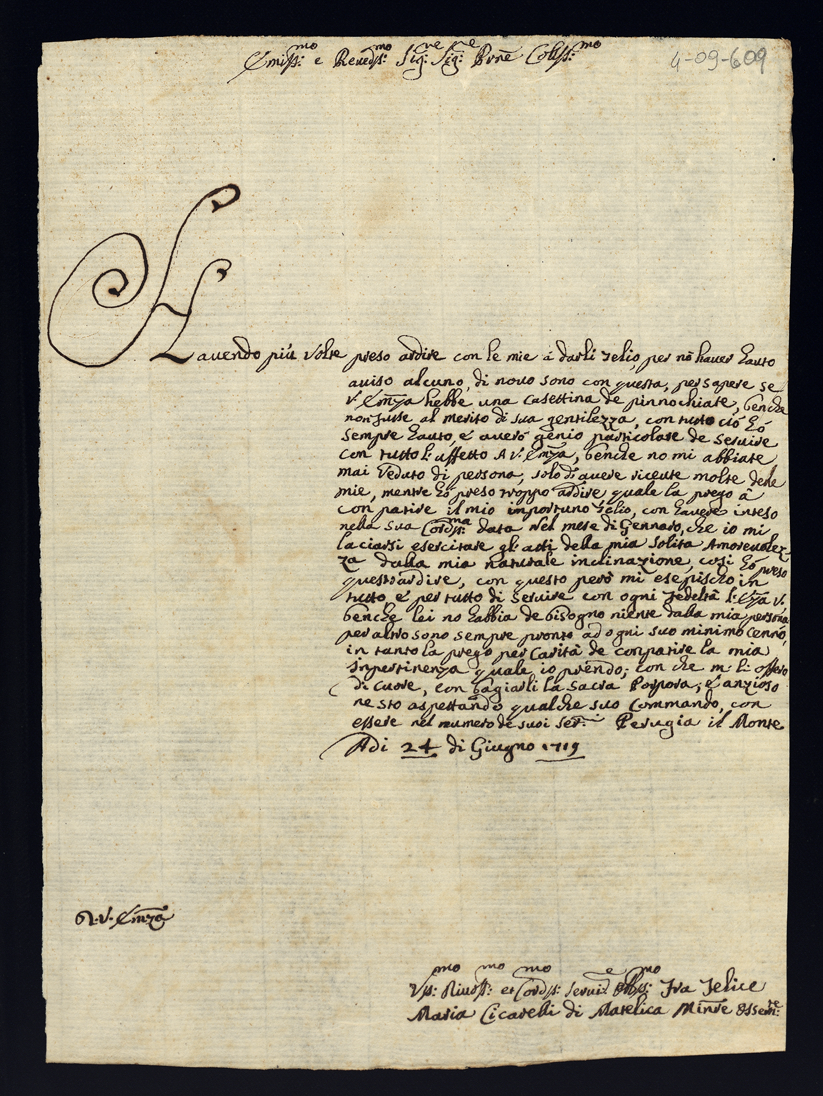 Emiss:mo e Reuerdss:mo Sig:re Sig:re Prne Coliss:mo
4-09-609
Hauendo più volte preso ardire con le mie á darli Telio, per nõ hauer hauto
auiso alcuno, di nouo sono con questa, per sapere se
V: Emza hebbe una casettina de pinnochiate, benche
non fusse al merito di sua gentilezza, con tutto ciò hó
sempre hauto, e auerò genio particolare de seruire
con tutto l'affetto A V: Emza, benche no mi abbiate
mai Veduto di persona, solo di auere riceute molte delle
mie, mentre hó preso troppo ardire, quale la prego á
conpatire il mio importuno Telio, con hauere inteso
nella sua Cordss:ma data nel mese di Gennaro, che io mi
laciassi esercitare gl'atti della mia solita Amoreuolez-
za dalla mia naturale inclinazione, così hó preso
questo ardire, con questo però mi esepisclo in
tutto, e per tutto di seruire con ogni fedeltà l: Emza V:
benche lei no habbia de bisogno niente dalla mia persona
per altro sono sempre pronto ad ogni suo minimo cenno,
in tanto la prego per Carità de conpatire la mia
inpertinenza quale io prendo; con che m: li offero
di Cuore, con bagiarli la Sacra Porpora; e anzioso
ne sto aspettando qualche suo Commando, con
essere nel numero de suoi ser:ri Perugia il Monte
Adi 24 di Giugno 1719
D. V. Emza
Vss:mo Riuerss:mo et Cordss:mo Seruir:e Obbg:mo Fra Felice
Maria Cicarelli di Matelica Minre Osseru:te